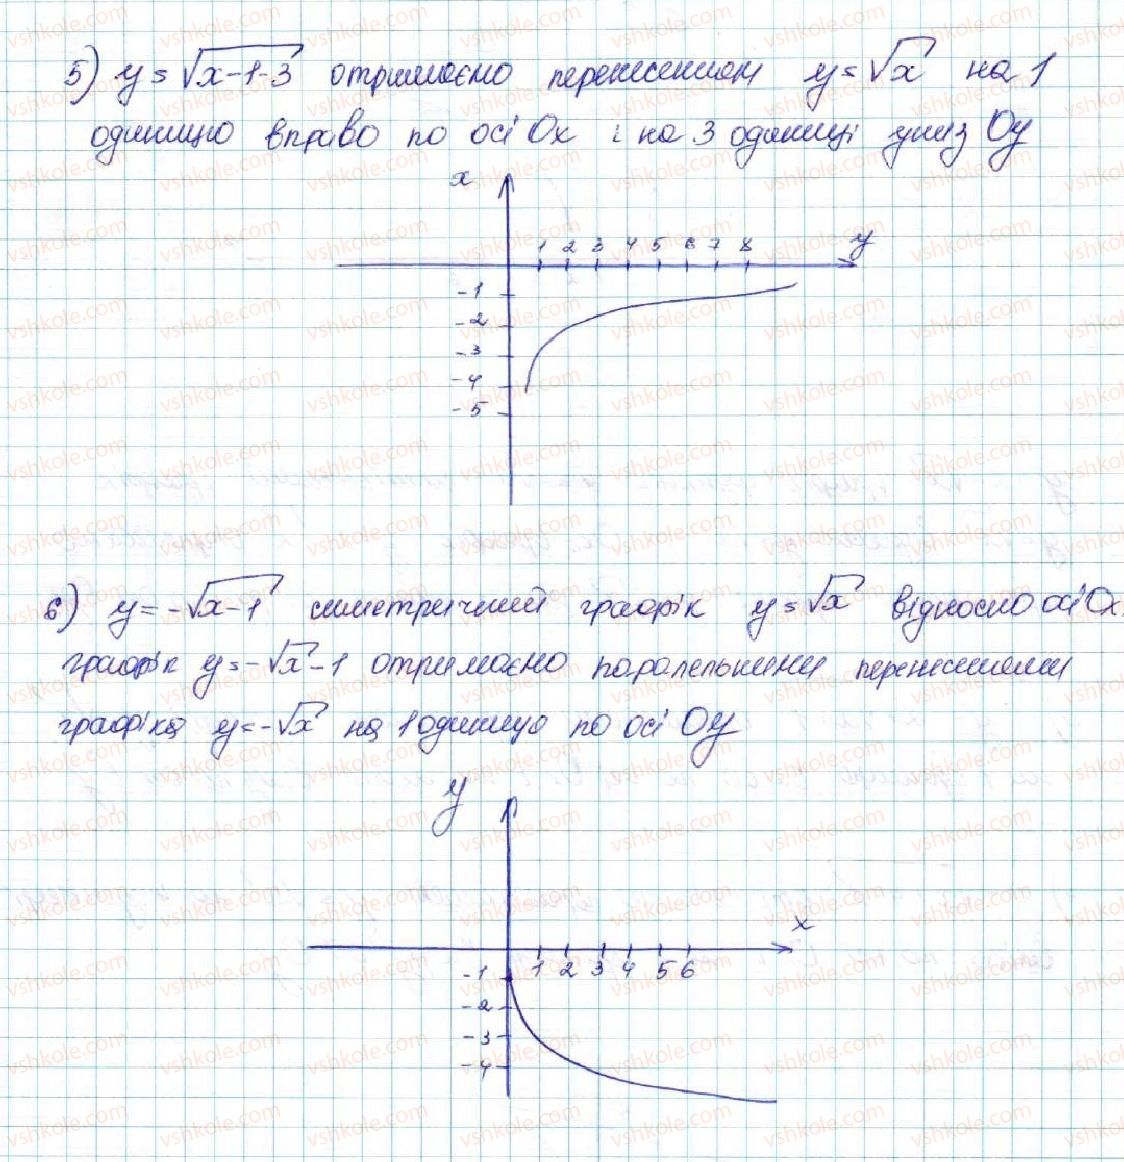 5) y = √x-1-3 отримаємо перенесенням y = √x на 1
одиницю вправо по осі Ox і на 3 одиниці униз Oy
x
1 2 3 4 5 6 7 8
y
-1
-2
-3
-4
-5
6) y = -√x-1 симетричний графік y = √x відносно осі Ox.
графік y = -√x-1 отримаємо паралельними перенесенням
графіка y = -√x на 1 одиницю по осі Oy
y
x
1 2 3 4 5 6
-1
-2
-3
-4
vshkole.com